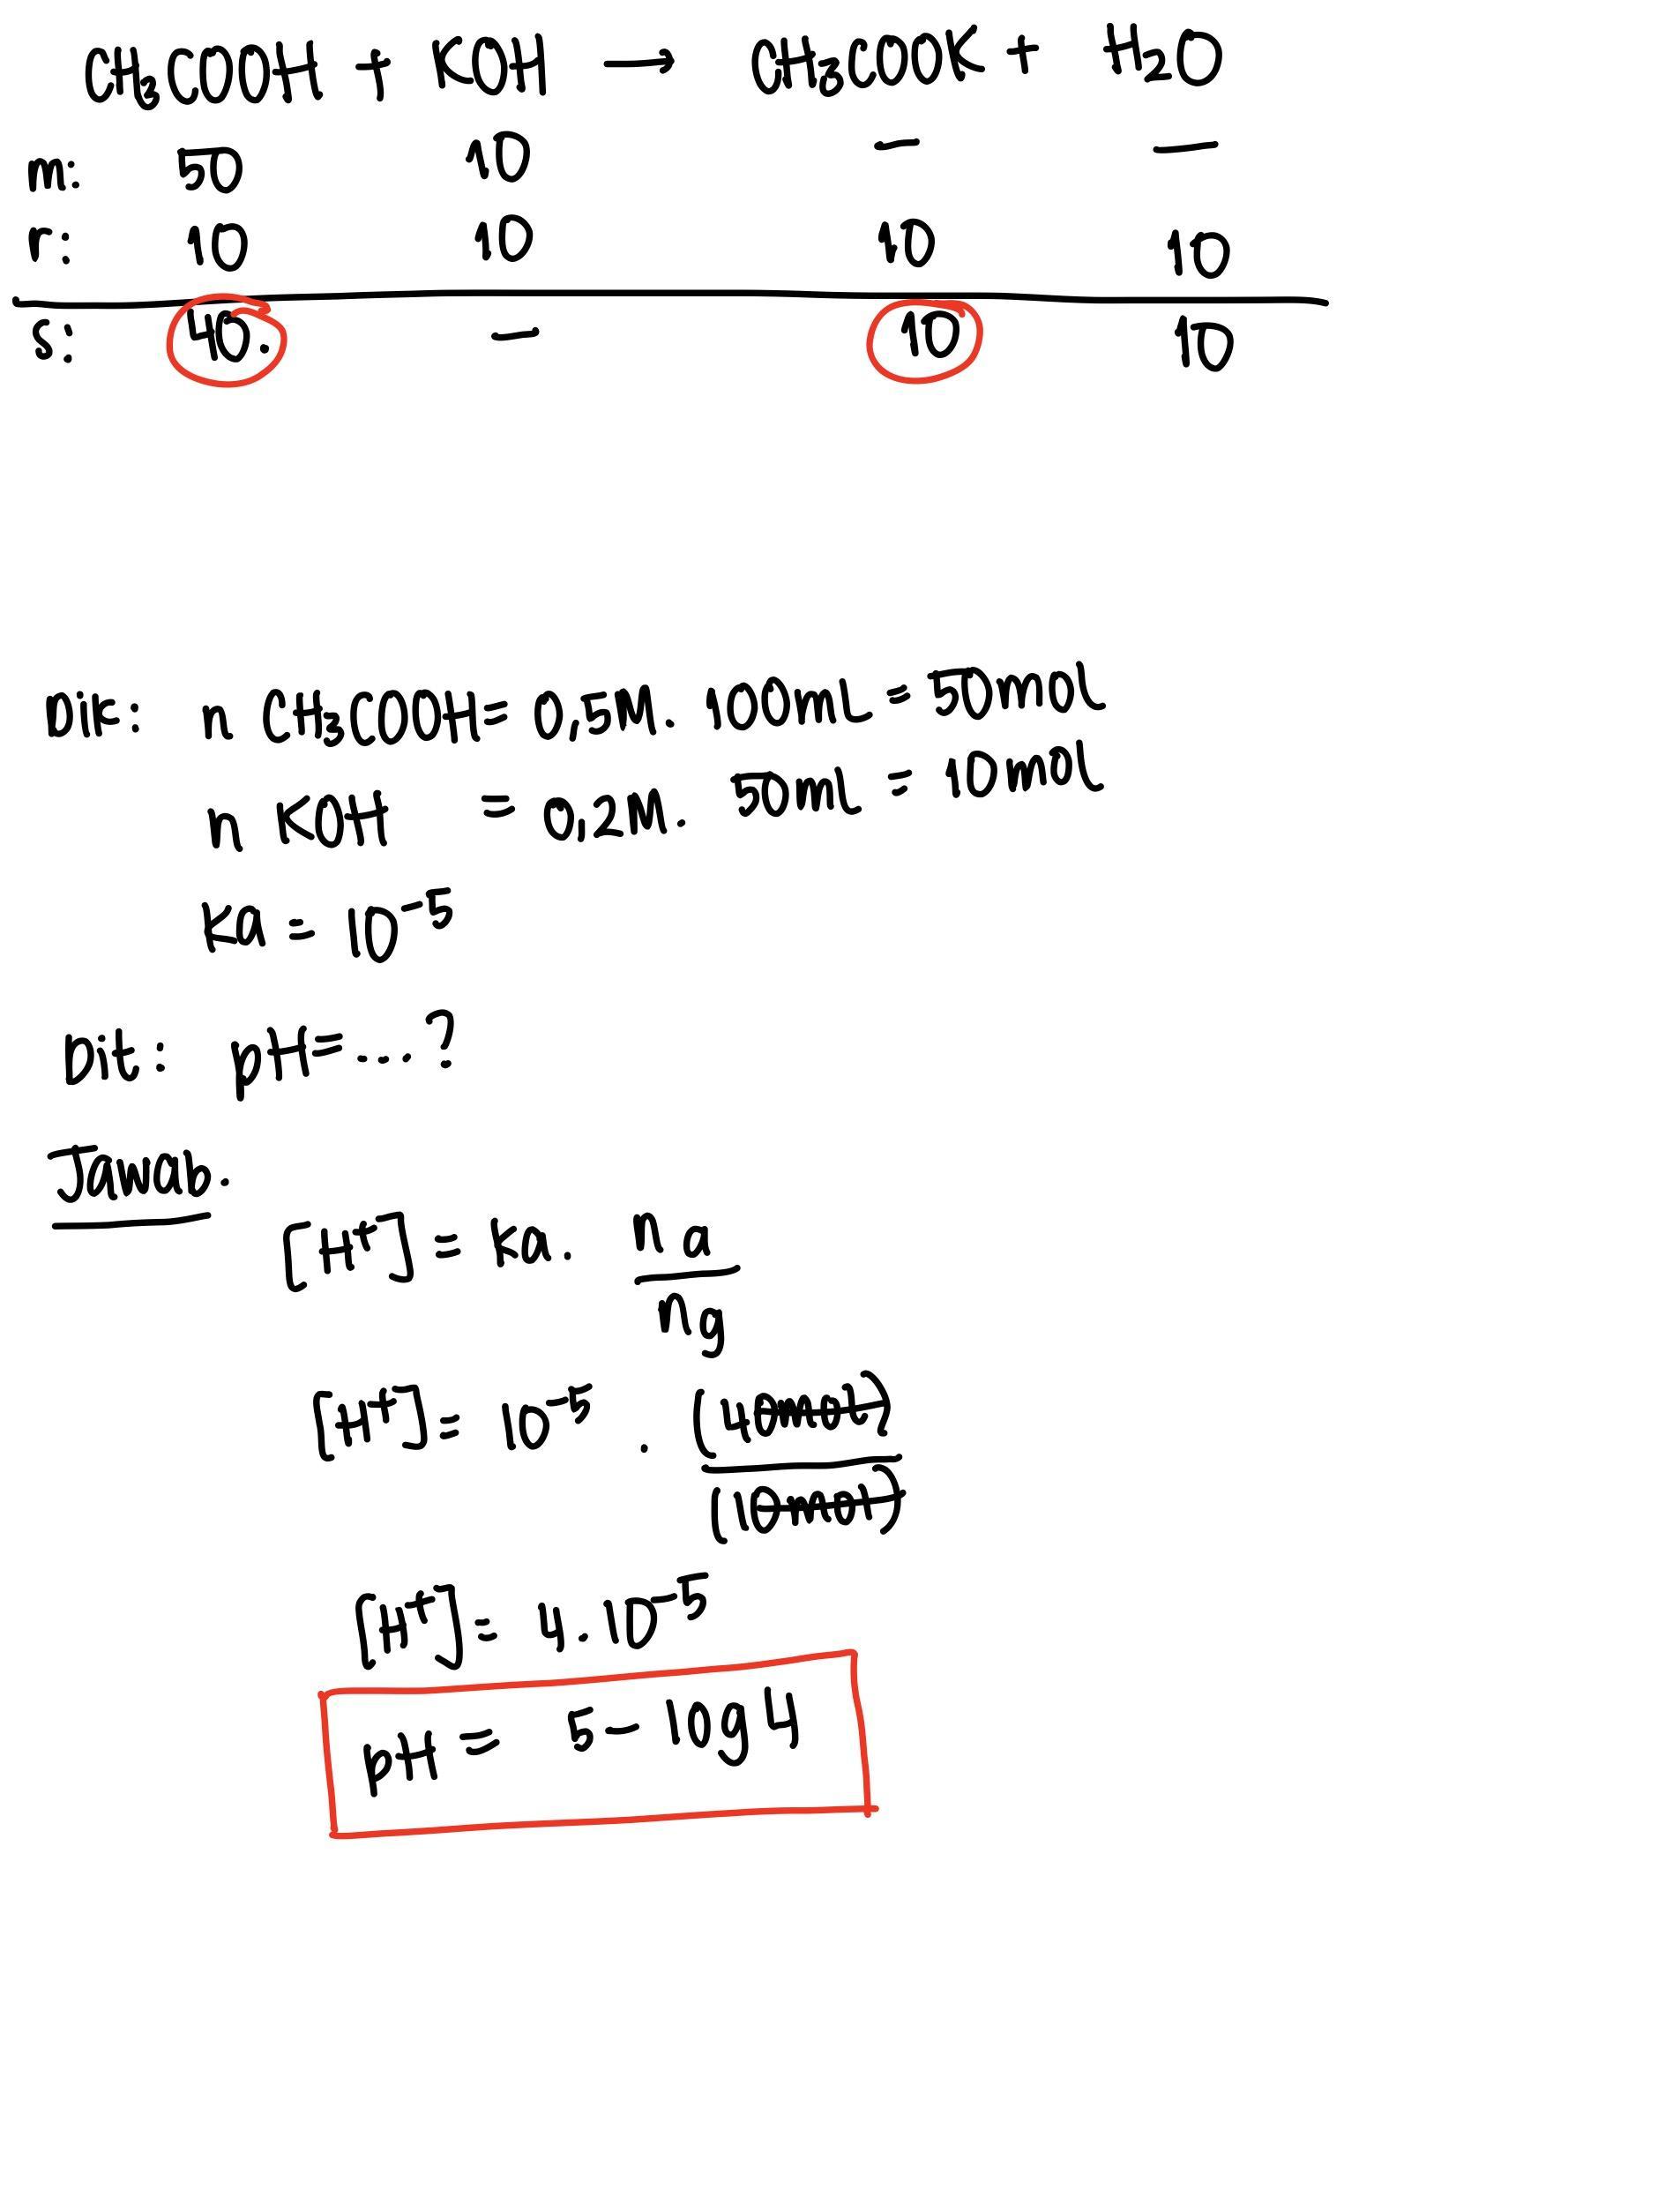 CH₃COOH + KOH → CH₃COOK + H₂O
m: 50 10 — —
r: 10 10 10 10
s: 40. — 10 10
Dik: n CH₃COOH = 0,5M. 100ml = 50mol
n KOH = 0,2M. 50ml = 10mol
Ka = 10⁻⁵
Dit: pH = ...?
Jawab.
[H⁺] = Ka. na/ng
[H⁺] = 10⁻⁵ . (40mol)/(10mol)
[H⁺] = 4.10⁻⁵
pH = 5 - log4